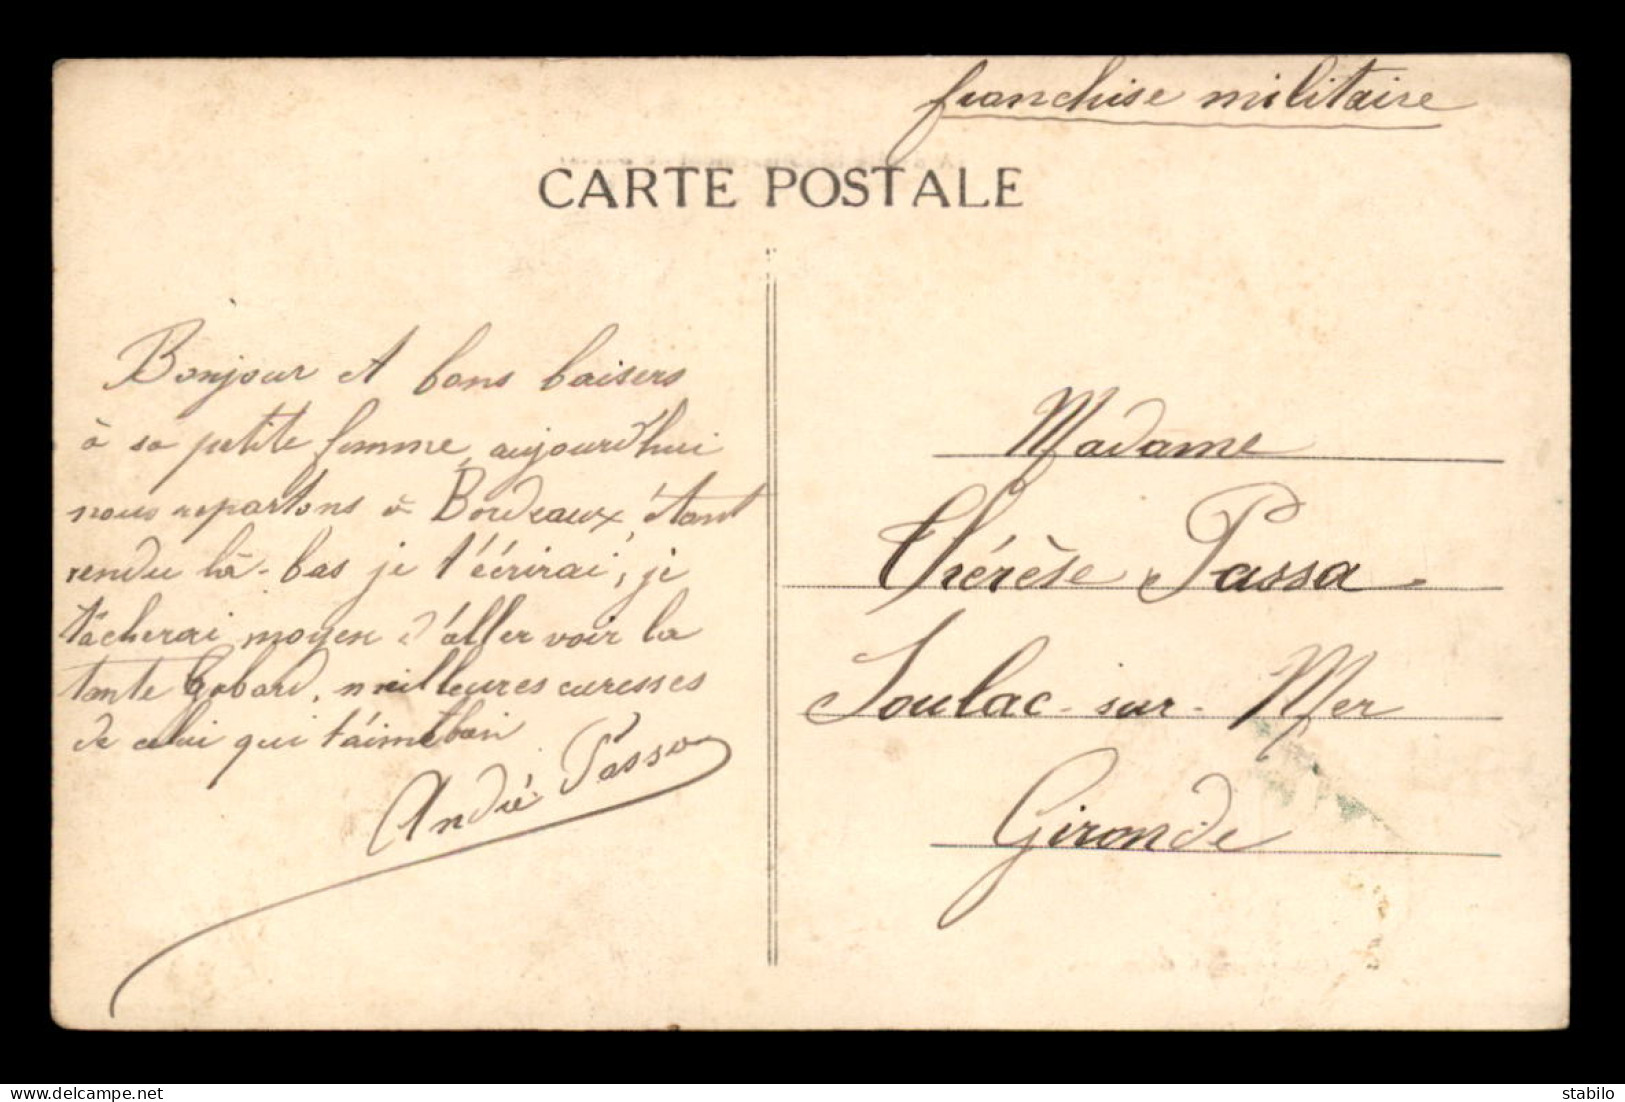 franchise militaire
CARTE POSTALE
Bonjour et bons baisers
à sa petite femme, aujourd'hui
nous repartons à Bordeaux, étant
rendu là-bas je t'écrirai, je
tâcherai moyen d'aller voir la
tante Gobard, meilleures caresses
de celui qui t'aime bien
André Passa
Madame
Thérèse Passa
Soulac-sur-Mer
Gironde
delcampe.net
stabilo